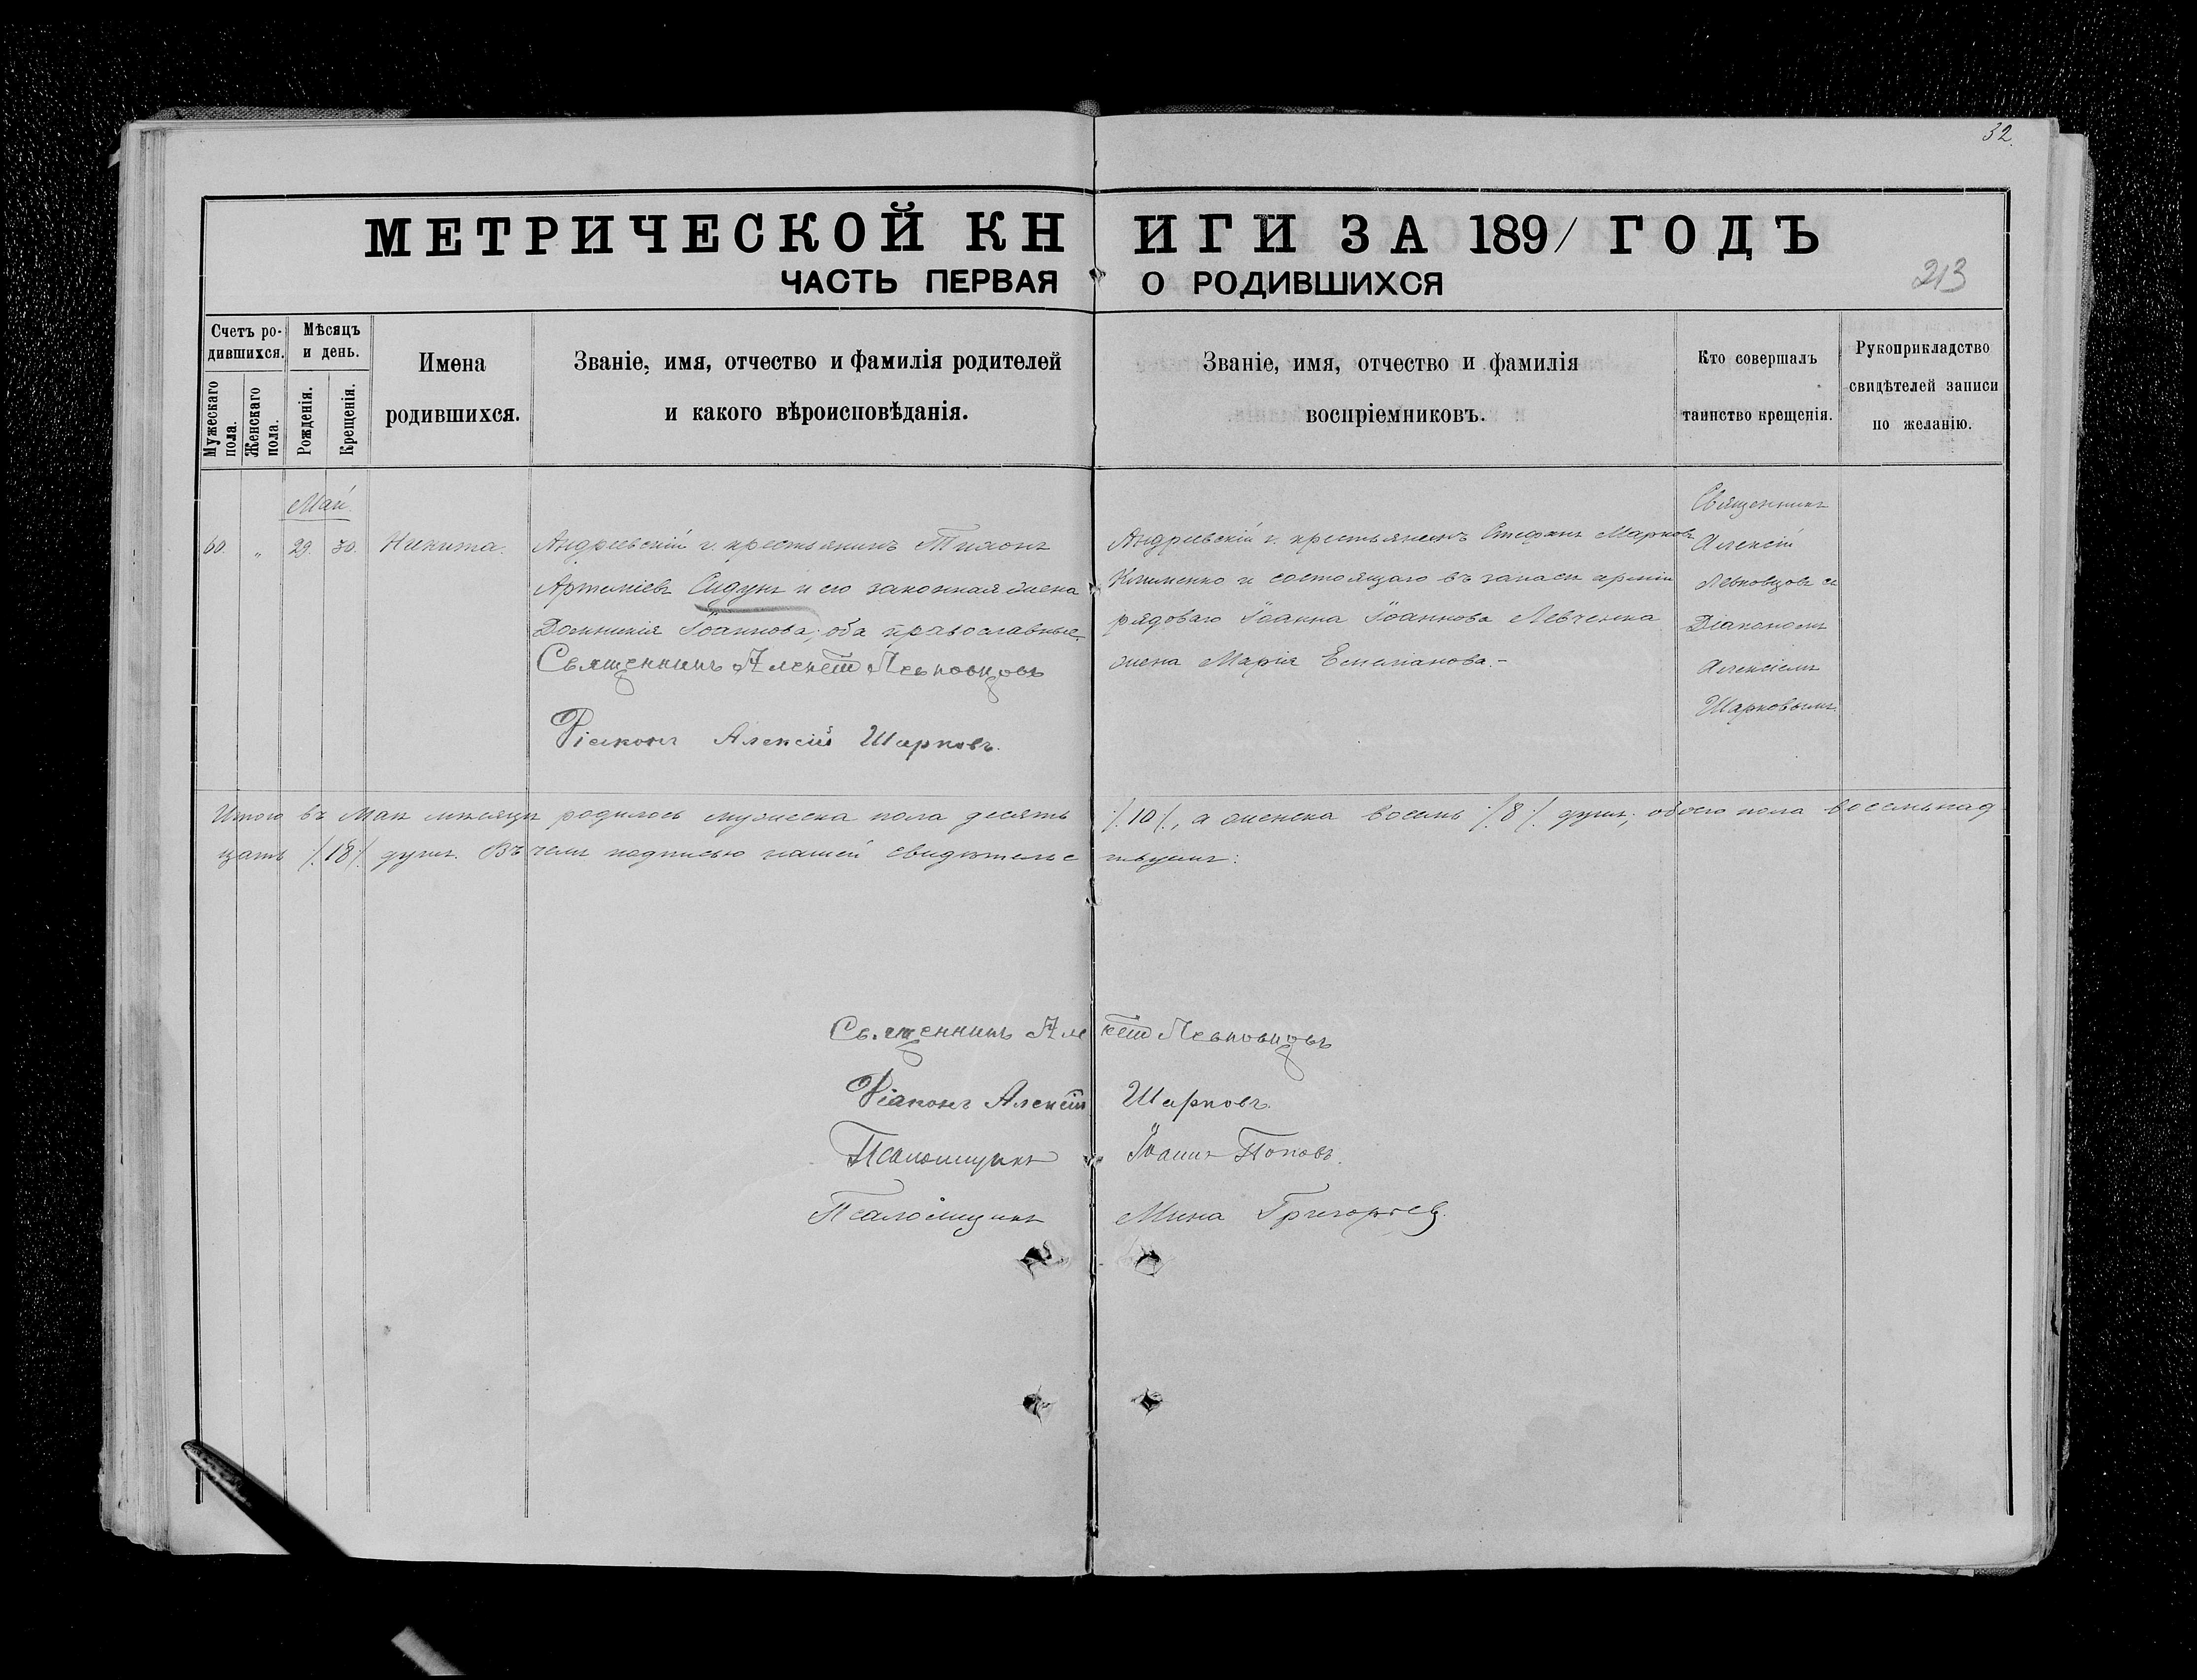 32.
МЕТРИЧЕСКОЙ КНИГИ ЗА 1891 ГОДЪ
ЧАСТЬ ПЕРВАЯ О РОДИВШИХСЯ
213
Счетъ ро-
дившихся.
Мужескаго пола.
Женскаго пола.
Мѣсяцъ
и день.
Рожденія.
Крещенія.
Имена
родившихся.
Званіе, имя, отчество и фамилія родителей
и какого вѣроисповѣданія.
Званіе, имя, отчество и фамилія
воспріемниковъ.
Кто совершалъ
таинство крещенія.
Рукоприкладство
свидѣтелей записи
по желанію.
Май.
60. „ 29. 30. Никита.
Андреевскій г. крестьянинъ Тихонъ
Артеміевъ Сидунъ и его законная жена
Домникія Іоаннова, оба православные.
Священникъ Алексій Левковцовъ
Діаконъ Алексій Шарковъ.
Андреевскій г. крестьянинъ Стефанъ Марковъ
Клименко и состоящаго въ запасѣ арміи
рядоваго Іоанна Іоаннова Левченка
жена Марія Емиліанова.-
Священникъ
Алексій
Левковцовъ съ
Діакономъ
Алексіемъ
Шарковымъ.
Итого въ Маѣ мѣсяцѣ родилось мужеска пола десять ./.10./., а женска восемь ./.8./. душъ; обоего пола восемьнад
цать ./.18./. душъ. Въ чемъ подписью нашей свидѣтельствуемъ:
Священникъ Алексій Левковцовъ
Діаконъ Алексій Шарковъ.
Псаломщикъ Іоаннъ Поповъ.
Псаломщикъ Мина Григорьев.